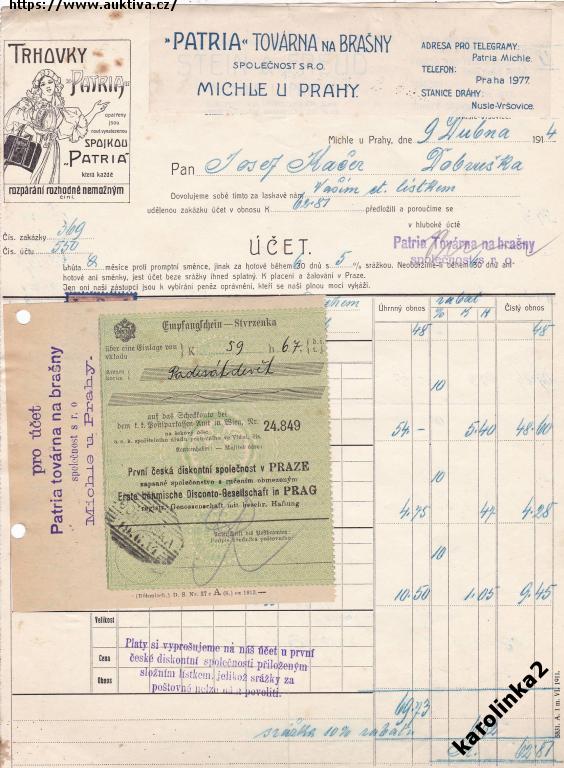 https://www.auktiva.cz/
TRHOVKY
"PATRIA"
opatřeny
jsou
nově vynalezenou
SPOJKOU
„PATRIA"
která každé
rozpárání rozhodně nemožným
činí.
»PATRIA« TOVÁRNA NA BRAŠNY
SPOLEČNOST S R.O.
MICHLE U PRAHY.
ADRESA PRO TELEGRAMY:
Patria Michle.
TELEFON:
Praha 1977.
STANICE DRÁHY:
Nusle-Vršovice.
Michle u Prahy, dne 9 Dubna 1914
Pan Josef Kačer Dobruška
Dovolujeme sobě tímto za laskavě nám Vaším ct. lístkem
udělenou zakázku účet v obnosu K 62·81 předložiti a poroučíme se
v hluboké úctě
Čís. zakázky 369
Čís. účtu 550
ÚČET.
Patria Továrna na brašny
společnost s r. o.
Lhůta 8 měsíce proti promptní směnce, jinak za hotové během 30 dnů s 5 % srážkou. Neobdržíme-li během 30 dní
hotové ani směnky, jest účet beze srážky ihned splatný. K placení a žalování v Praze.
Jen oni naši zástupci jsou k vybírání peněz oprávněni, kteří se naší plnou mocí vykáží.
Úhrnný obnos
rabat
% K H
Čistý obnos
48 48
10
54 – 5·40 48·60
10
4.75 47 4.28
10
10.50 1.05 9.45
pro účet
Patria továrna na brašny
společnost s r. o
Michle u Prahy.
Empfangschein – Stvrzenka
über eine Einlage von
vkladu
K 59 h 67
Padesát devět
auf das Scheckkonto bei
dem k. k. Postsparkassen-Amt in Wien, Nr. 24.849
První česká diskontní společnost v PRAZE
zapsané společenstvo s ručením obmezeným
Erste böhmische Disconto-Gesellschaft in PRAG
registr. Genossenschaft mit beschr. Haftung
(Böhmisch.) D. S. Nr. 27 A
Velikost
Cena
Obnos
Platy si vyprošujeme na náš účet u první
české diskontní společnosti přiloženým
složním lístkem, jelikož srážky za
poštovné nelze povoliti.
69,73
srážka 10% rabatu
62·81
karolinka2